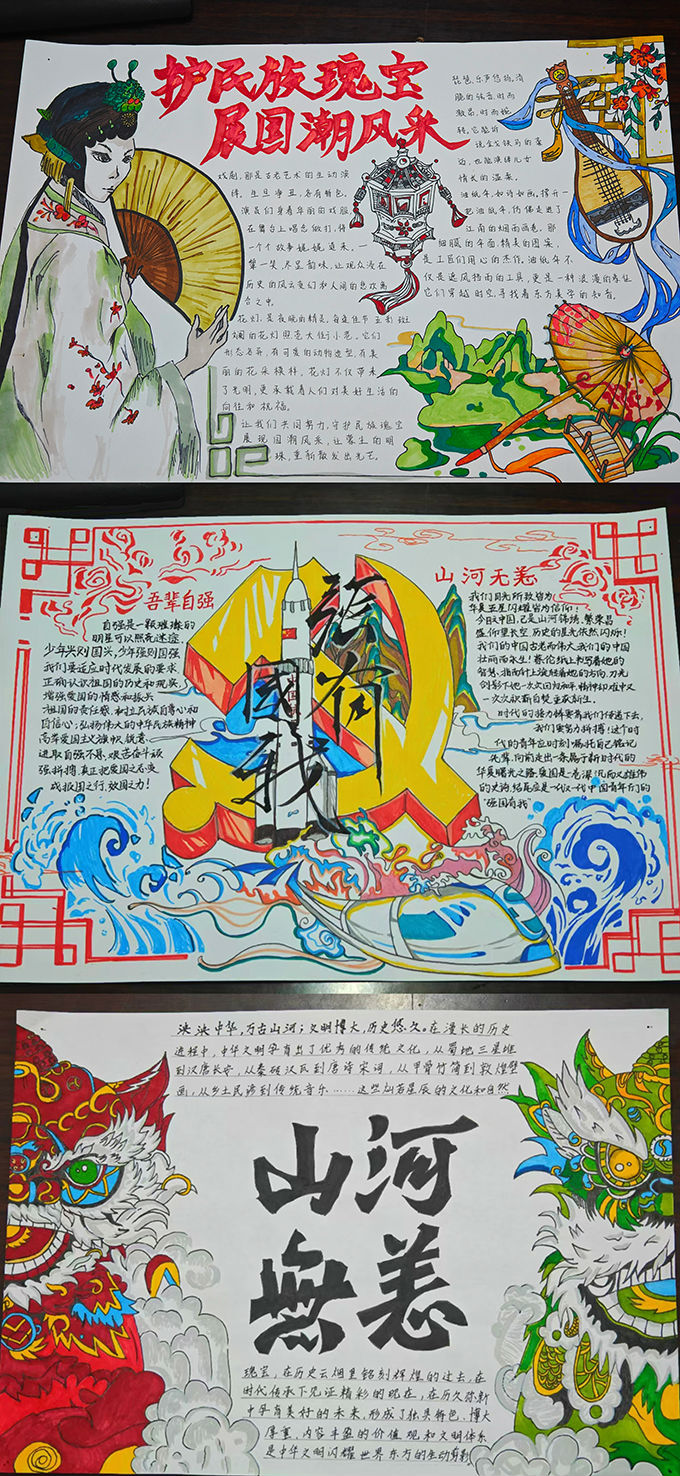 护民族瑰宝
展国潮风采
戏剧,那是古老艺术的生动演
绎。生旦净丑,各有特色。
演员们身着华丽的戏服
在舞台上唱念做打,将
一个个故事娓娓道来,一
颦一笑,尽显韵味,让观众沉浸在
历史的风云变幻和人间的悲欢离
合之中。
花灯,是夜晚的精灵,每逢佳节,五彩斑
斓的花灯照亮大街小巷。它们
形态各异,有可爱的动物造型,有美
丽的花朵模样。花灯不仅带来
了光明,更承载着人们对美好生活的
向往和祝福。
让我们共同努力,守护民族瑰宝
展现国潮风采,让蒙尘的明
珠,重新散发出光芒。
琵琶,乐声悠扬。清
脆的弦音,时而
激昂,时而婉
转,它能诉
说金戈铁马的豪
迈,也能演绎儿女
情长的温柔。
油纸伞,如诗如画。撑开一
把油纸伞,仿佛走进了
江南的烟雨画卷,那
细腻的伞面,精美的图案,
是工匠们用心的杰作。油纸伞不
仅是遮风挡雨的工具,更是一种浪漫的象征
它们穿越时空,寻找着东方美学的知音。
吾辈自强
自强是一颗璀璨的
明星可以照亮迷途
少年兴则国兴,少年强则国强
我们要适应时代发展的要求
正确认识祖国的历史和现实,
增强爱国的情感和振兴
祖国的责任感,树立民族自尊心和
自信心;弘扬伟大的中华民族精神
高举爱国主义旗帜,锐意
进取自强不息,艰苦奋斗顽
强拼搏,真正把爱国之志变
成报国之行,效国之力!
强国有我
山河无恙
我们目光所致皆为
华夏五星闪耀皆为信仰!
今日之中国,已是山河锦绣,繁荣昌
盛,仰望长空,历史的星光依然闪烁!
我们的中国古老而伟大,我们的中国
壮丽而永生!
时代的接力棒要靠我们传递下去,
我们要努力拼搏!这个时
代的青年应时刻
先辈,向前走出一条属于新时代的
华夏曙光之路,爱国是一首深沉而又雄伟
一代又一代中国青年们的
“强国有我”
泱泱中华,万古山河;文明博大,历史悠久。在漫长的历史
进程中,中华文明孕育出了优秀的传统文化,从蜀地三星堆
到汉唐长安,从秦砖汉瓦到唐诗宋词,从甲骨竹简到敦煌壁
画,从乡土民谣到传统音乐……这些灿若星辰的文化和自然
山河
無恙
瑰宝,在历史云烟里铭刻辉煌的过去,在
时代传承下见证精彩的现在,在历久弥新
中孕育美好的未来,形成了独具特色、博大
厚重、内容丰盈的价值观和文明体系
是中华文明闪耀世界东方的生动剪影